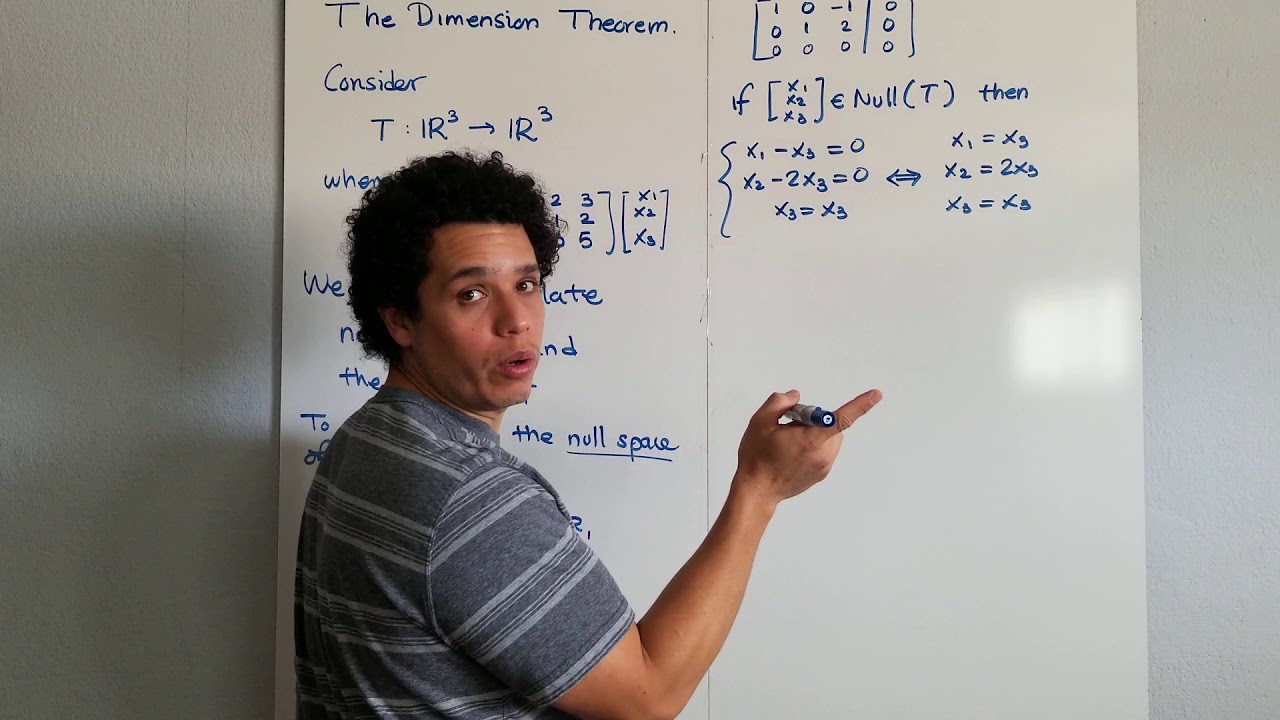 The Dimension Theorem.
Consider
T : ℝ³ → ℝ³
2 3
1 2
5
[x₁
x₂
x₃]
We
and
the
To the null space
of
[1 0 -1 | 0
0 1 2 | 0
0 0 0 | 0]
If [x₁
x₂
x₃] ∈ Null(T) then
{ x₁ - x₃ = 0 x₁ = x₃
x₂ - 2x₃ = 0 ⇔ x₂ = 2x₃
x₃ = x₃ x₃ = x₃